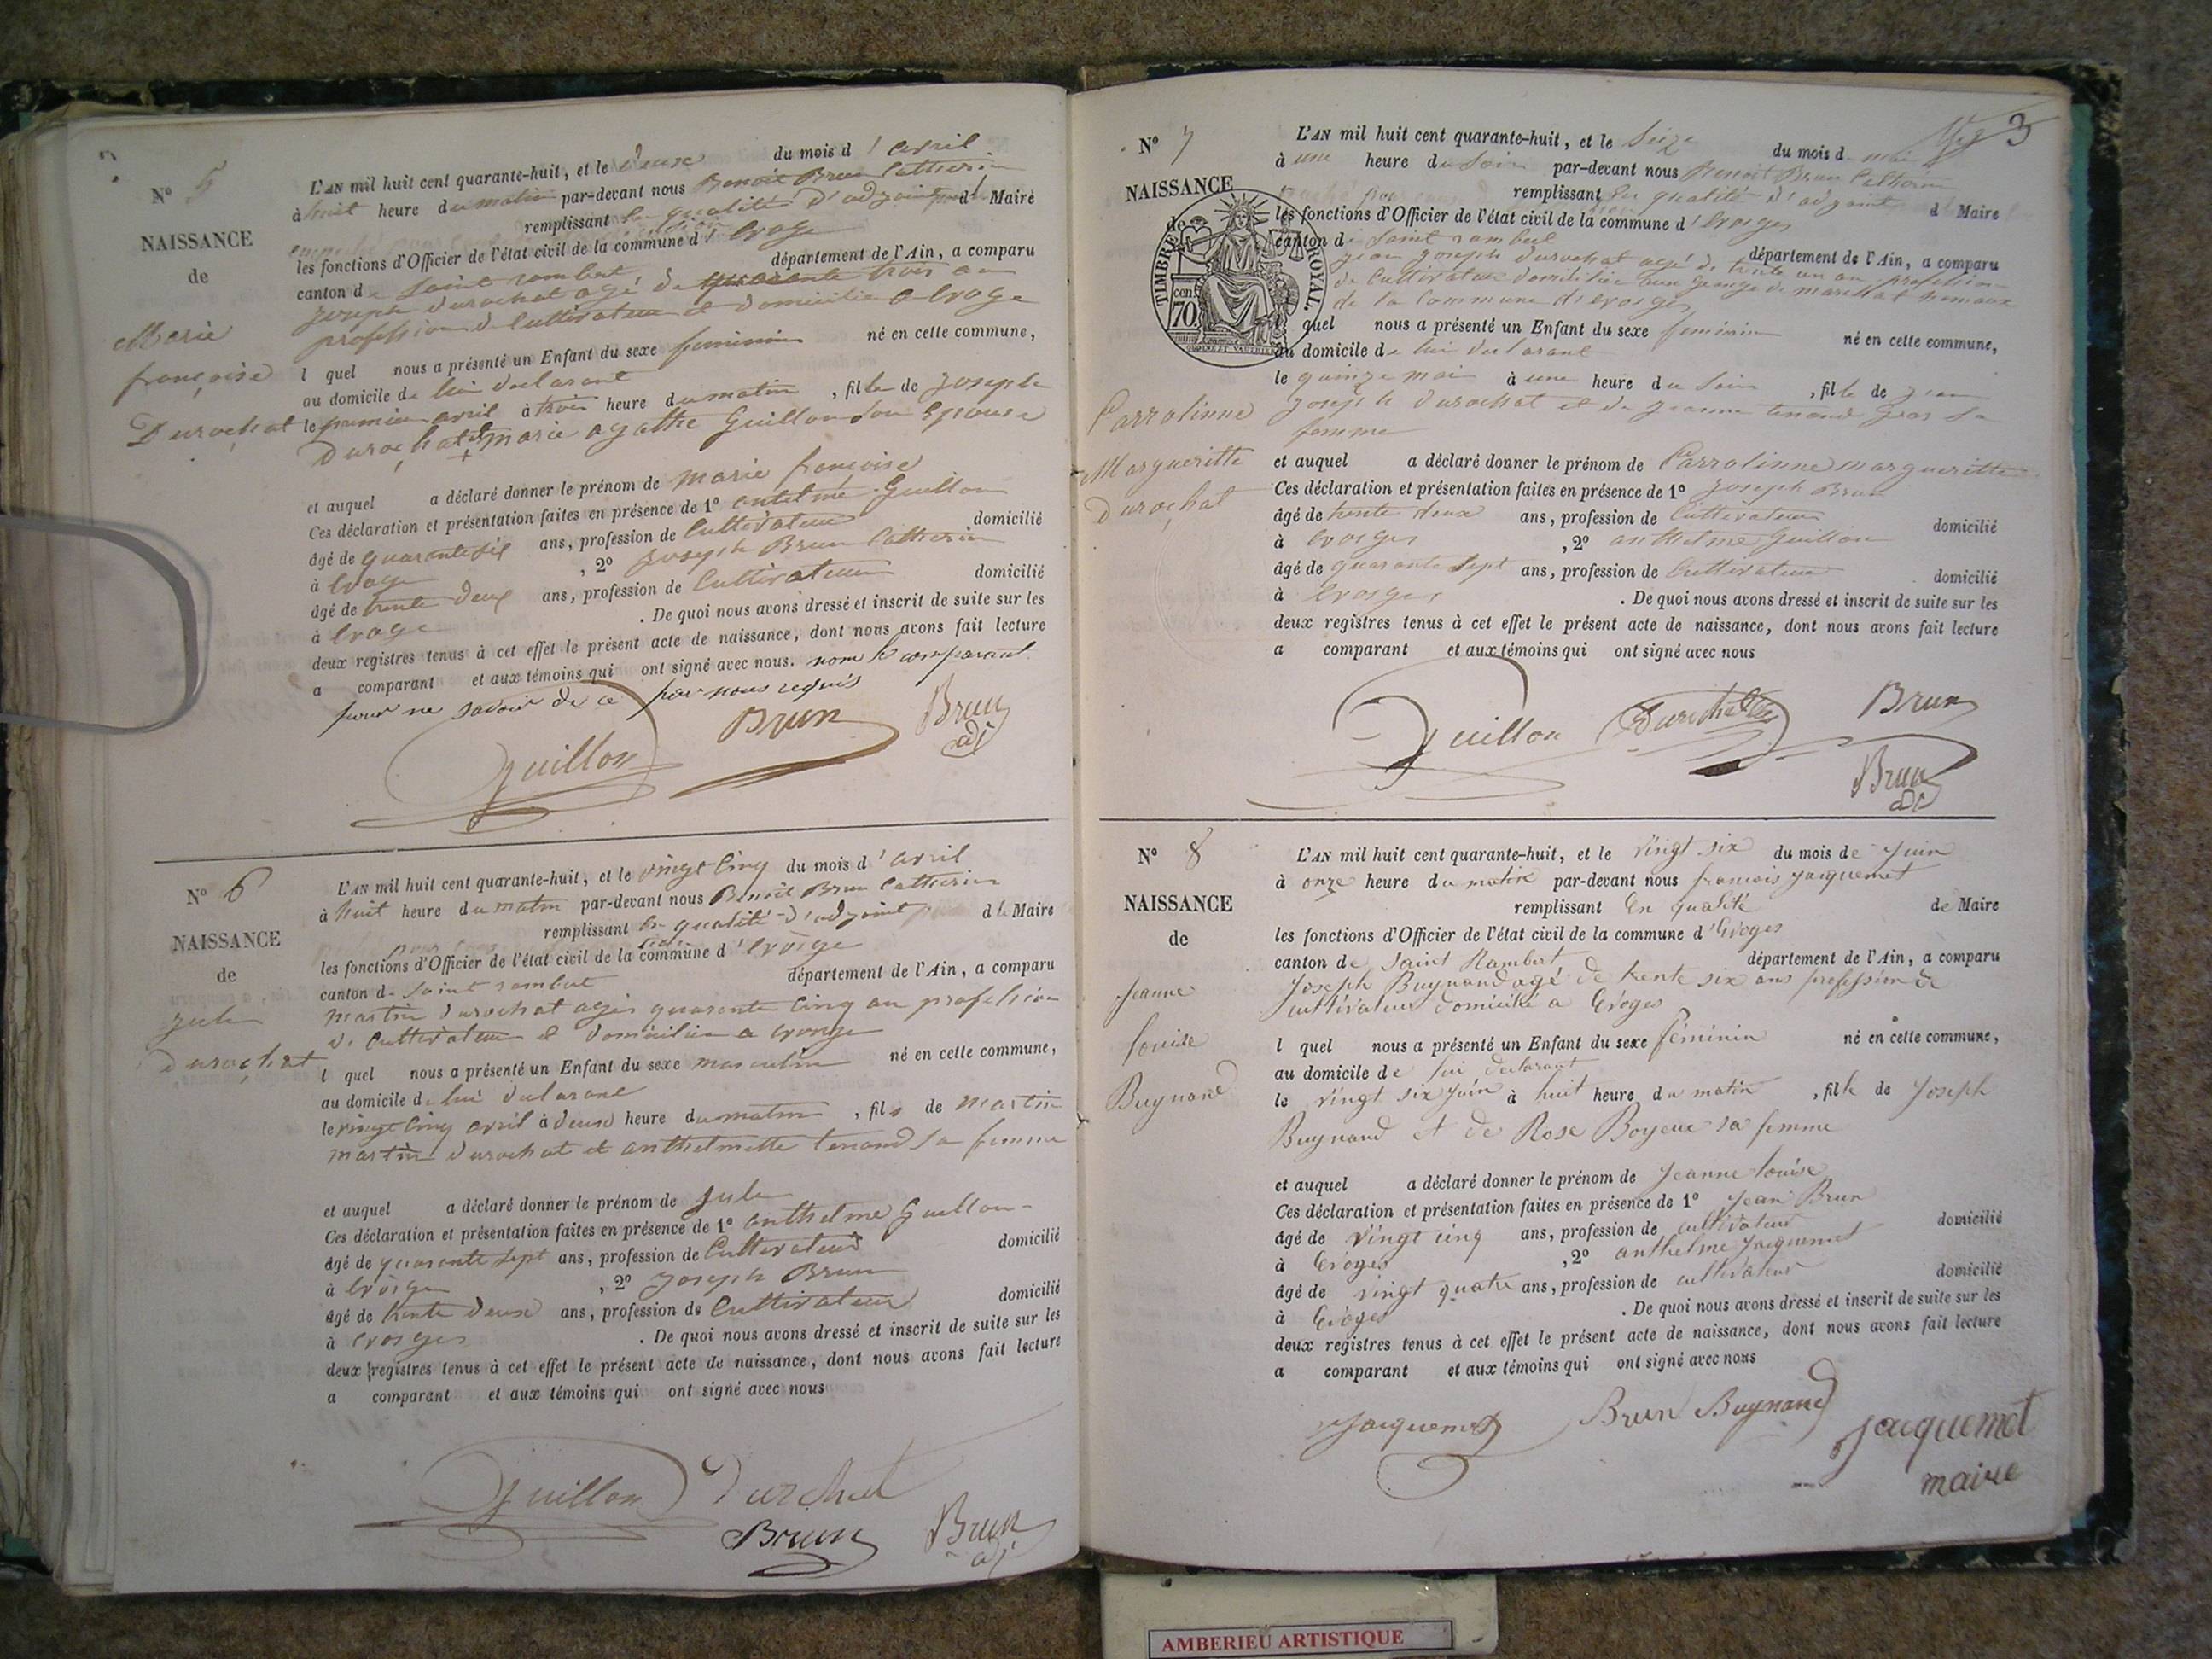 N° 5
NAISSANCE
de
Marie
françoise
Durochat
L'AN mil huit cent quarante-huit, et le deux du mois d'avril
à huit heure du matin par-devant nous Benoit Brun Catherin
remplissant en qualité d'adjoint d Maire
les fonctions d'Officier de l'état civil de la commune d'Evoge
canton de Saint rambert département de l'Ain, a comparu
joseph durochat agé de quarante trois an
profession de Cultivateur et domicilié a Evoge
l quel nous a présenté un Enfant du sexe feminin né en cette commune,
au domicile de lui declarant
le premier avril à trois heure du matin, fille de joseph
Durochat et marie agathe Guillon son Epouse
et auquel a déclaré donner le prénom de marie françoise
Ces déclaration et présentation faites en présence de 1° antelme Guillon
âgé de quarante six ans, profession de Cultivateur domicilié
à Evoge, 2° joseph Brun Catherin
âgé de trente deux ans, profession de Cultivateur domicilié
à Evoge. De quoi nous avons dressé et inscrit de suite sur les
deux registres tenus à cet effet le présent acte de naissance, dont nous avons fait lecture
a comparant et aux témoins qui ont signé avec nous. nom le comparant
pour ne savoir de ce par nous requis
Guillon Brun Brun adj
N° 6
NAISSANCE
de
jule
durochat
L'AN mil huit cent quarante-huit, et le vingt Cinq du mois d'avril
à huit heure du matin par-devant nous Benoit Brun Catherin
remplissant en qualité d'adjoint d le Maire
les fonctions d'Officier de l'état civil de la commune d'Evoge
canton de Saint rambert département de l'Ain, a comparu
martin durochat agés quarente Cinq an profession
de Cultivateur et domicilier a Evoge
l quel nous a présenté un Enfant du sexe masculin né en cette commune,
au domicile de lui declarant
le vingt Cinq avril à deux heure du matin, fils de martin
martin durochat et anthelmette tenand sa femme
et auquel a déclaré donner le prénom de jule
Ces déclaration et présentation faites en présence de 1° anthelme Guillon
âgé de quarente sept ans, profession de Cultivateur domicilié
à Evoge, 2° joseph Brun
âgé de trente deux ans, profession de Cultivateur domicilié
à Evoges. De quoi nous avons dressé et inscrit de suite sur les
deux registres tenus à cet effet le présent acte de naissance, dont nous avons fait lecture
a comparant et aux témoins qui ont signé avec nous
Guillon Durchat
Brun Brun adj
3
N° 7
NAISSANCE
de
TIMBRE ROYAL
cen 70
Carrolinne
Margueritte
Durochat
L'AN mil huit cent quarante-huit, et le Seize du mois d mai
à une heure du Soir par-devant nous Benoit Brun Catherin
remplissant en qualité d'adjoint d Maire
les fonctions d'Officier de l'état civil de la commune d'Evoges
canton de Saint rambert département de l'Ain, a comparu
jean joseph durochat agé de trente un an profession
de Cultivateur domicilié aux Grange de
de la Commune d'evoges
l quel nous a présenté un Enfant du sexe feminin né en cette commune,
au domicile de lui declarant
le quinze mai à une heure du Soir, fille de jean
joseph durochat et de jeanne tenand gras sa
femme
et auquel a déclaré donner le prénom de Carrolinne margueritte
Ces déclaration et présentation faites en présence de 1° joseph Brun
âgé de trente deux ans, profession de Cultivateur domicilié
à Evoges, 2° anthelme Guillon
âgé de quarante sept ans, profession de Cultivateur domicilié
à Evoges. De quoi nous avons dressé et inscrit de suite sur les
deux registres tenus à cet effet le présent acte de naissance, dont nous avons fait lecture
a comparant et aux témoins qui ont signé avec nous
Guillon Durochat Brun
Brun adj
N° 8
NAISSANCE
de
Jeanne
louise
Buynand
L'AN mil huit cent quarante-huit, et le vingt six du mois de Juin
à onze heure du matin par-devant nous françois jacquemet
remplissant En qualité de Maire
les fonctions d'Officier de l'état civil de la commune d'Evoges
canton de Saint Rambert département de l'Ain, a comparu
Joseph Buynand agé de trente six ans profession de
cultivateur domicilié a Evoges
l quel nous a présenté un Enfant du sexe féminin né en cette commune,
au domicile de lui declarant
le vingt six juin à huit heure du matin, fille de Joseph
Buynand et de Rose Boyeux sa femme
et auquel a déclaré donner le prénom de Jeanne louise
Ces déclaration et présentation faites en présence de 1° Jean Brun
âgé de vingt cinq ans, profession de cultivateur domicilié
à Evoges, 2° anthelme Jacquemet
âgé de vingt quatre ans, profession de cultivateur domicilié
à Evoges. De quoi nous avons dressé et inscrit de suite sur les
deux registres tenus à cet effet le présent acte de naissance, dont nous avons fait lecture
a comparant et aux témoins qui ont signé avec nous
Jacquemet Brun Buynand jacquemet
maire
AMBERIEU ARTISTIQUE